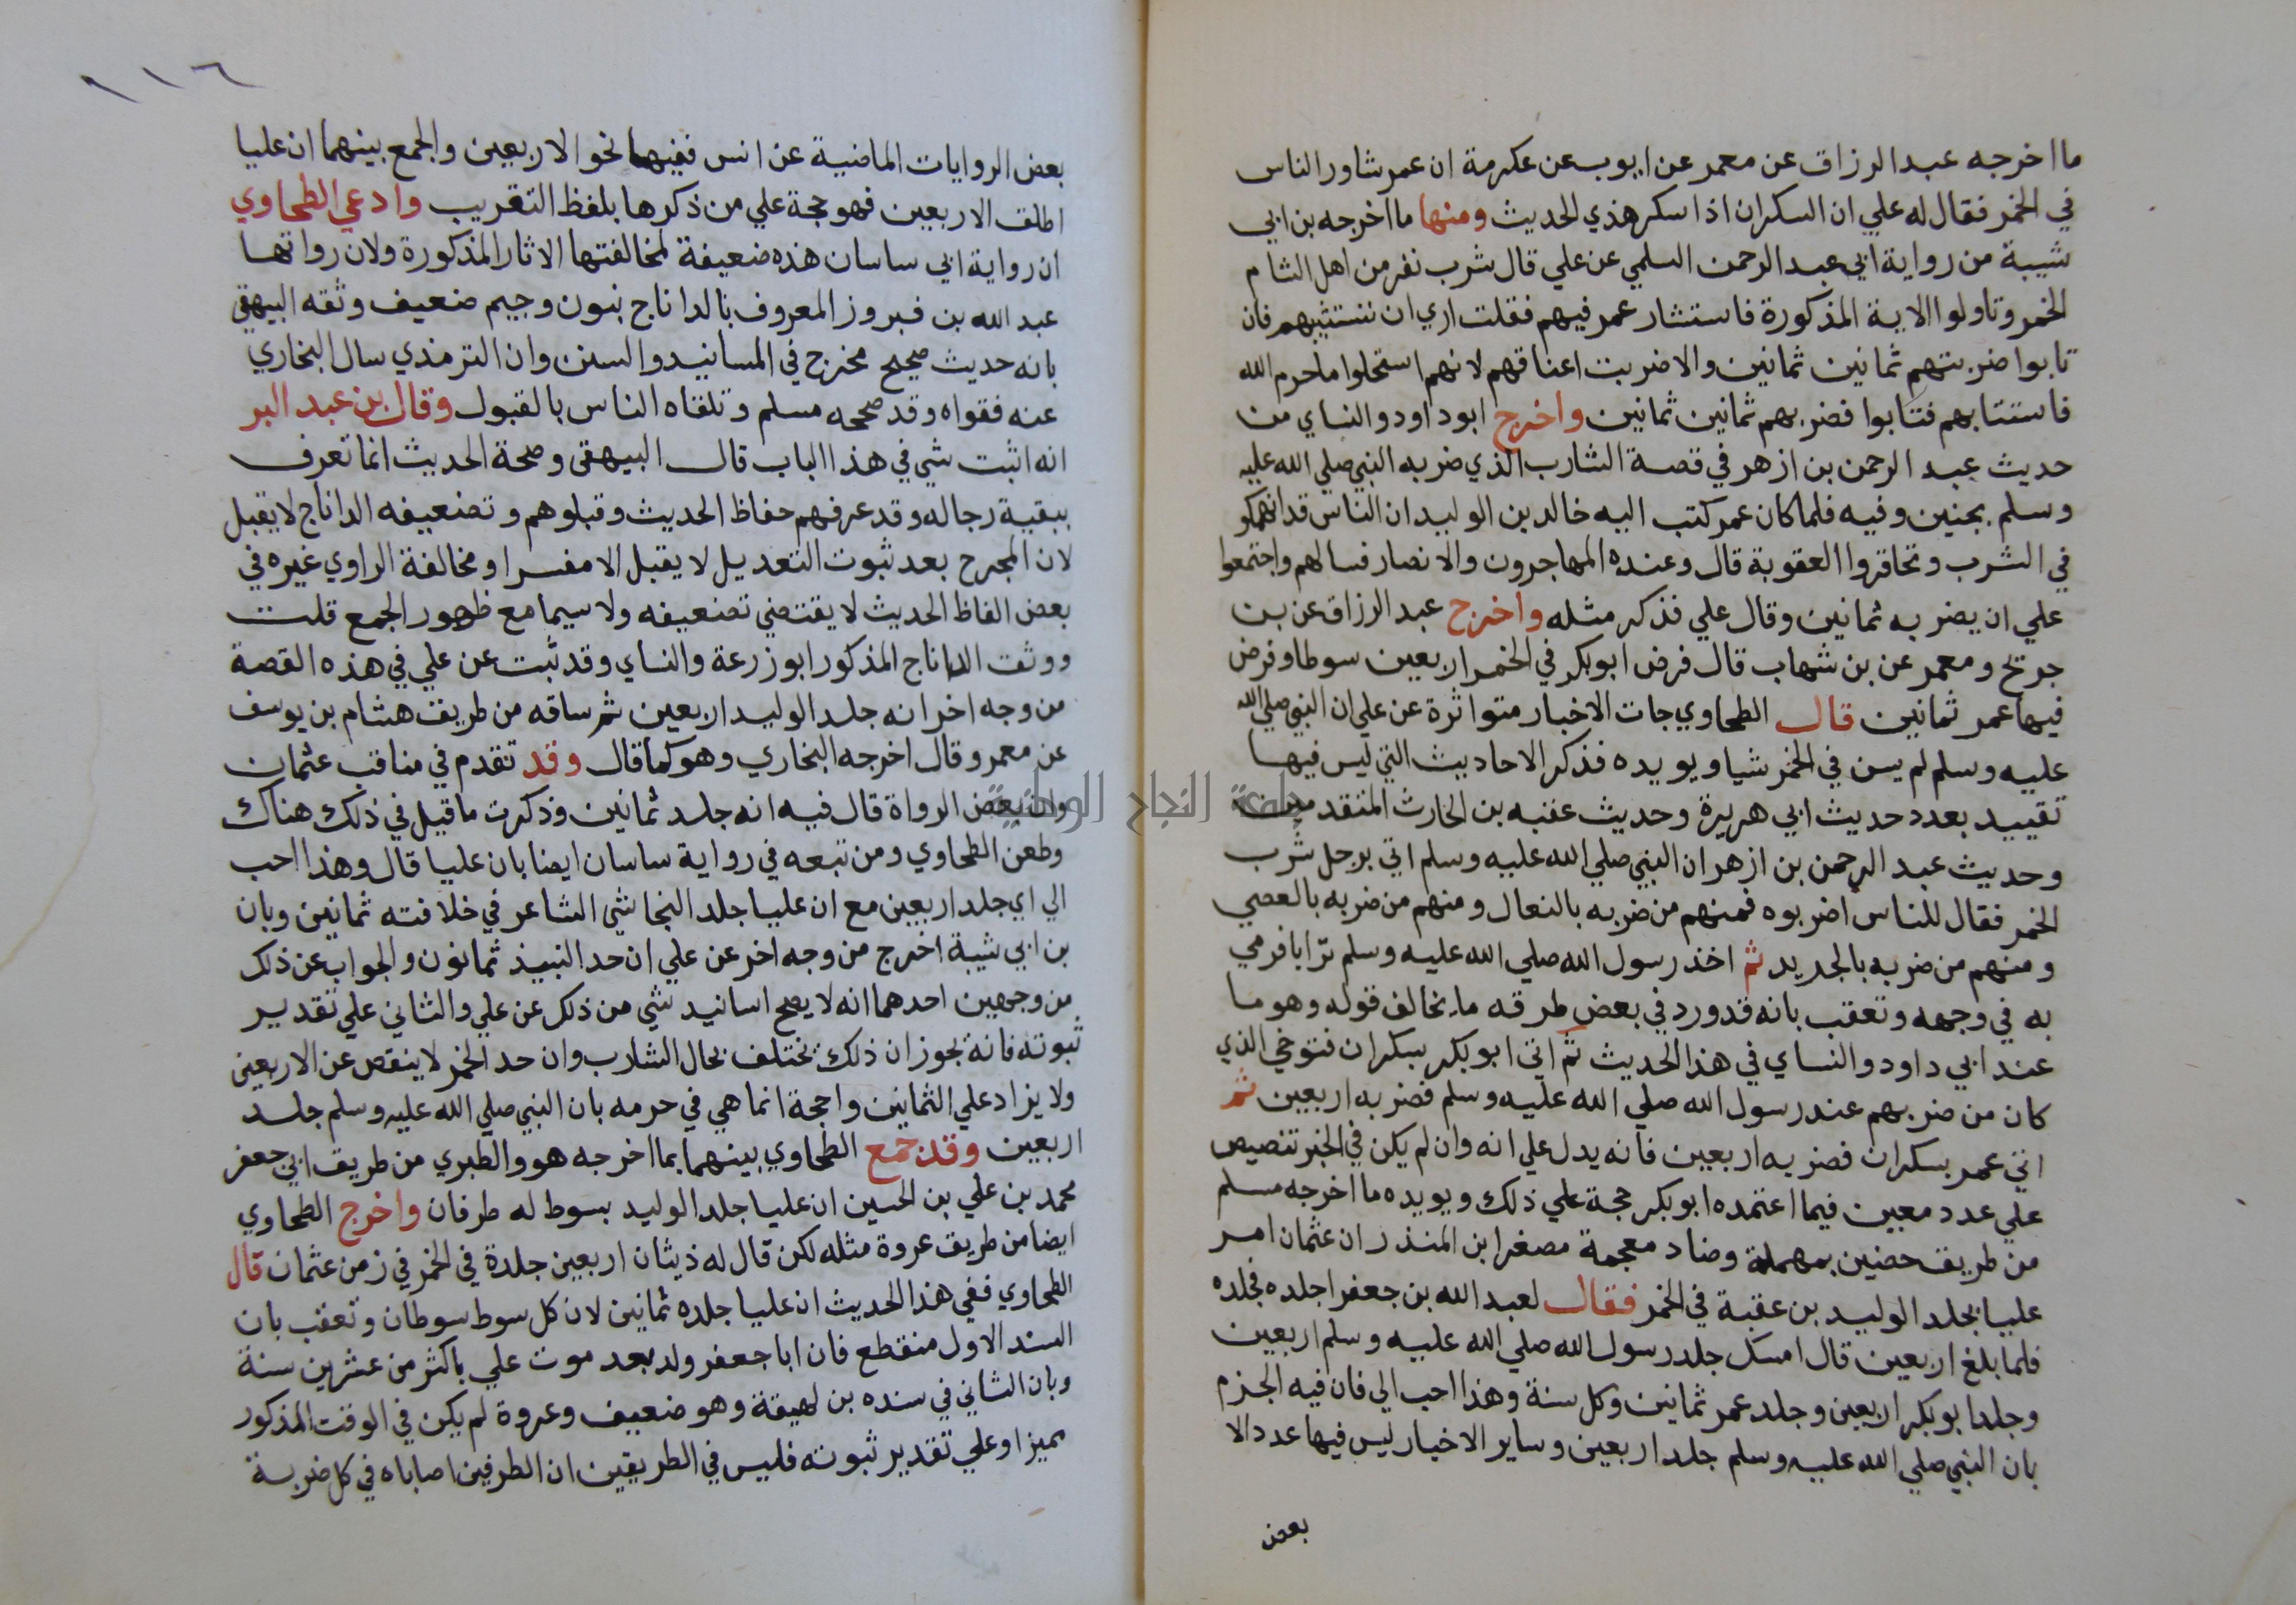 ما اخرجه عبد الرزاق عن معمر عن ايوب عن عكرمة ان عمر شاور الناس
في الخمر فقال له علي ان السكران اذا سكر هذي الحديث ومنها ما اخرجه بن ابي
شيبة من رواية ابي عبد الرحمن السلمي عن علي قال شرب نفر من اهل الشام
الخمر وتاولوا الاية المذكورة فاستشار عمر فيهم فقلت اري ان تستثيبهم فان
تابوا ضربتهم ثمانين ثمانين والا ضربت اعناقهم لانهم استحلوا ما حرم الله
فاستتابهم فتابوا فضربهم ثمانين ثمانين واخرج ابو داود والنساي من
حديث عبد الرحمن بن ازهر في قصة الشارب الذي ضربه النبي صلي الله عليه
وسلم بحنين وفيه فلما كان عمر كتب اليه خالد بن الوليد ان الناس قد انهمكو
في الشرب وتحاقروا العقوبة قال وعنده المهاجرون والانصار فسالهم واجتمعوا
علي ان يضربه ثمانين وقال علي فذكر مثله واخرج عبد الرزاق عن بن
جريج ومعمر عن بن شهاب قال فرض ابو بكر في الخمر اربعين سوطا وفرض
فيها عمر ثمانين قال الطحاوي جات الاخبار متواترة عن علي ان النبي صلي الله
عليه وسلم لم يسن في الخمر شيا ويويده فذكر الاحاديث التي ليس فيها
تقييد بعدد حديث ابي هريرة وحديث عقبه بن الحارث المتقدمين
وحديث عبد الرحمن بن ازهر ان النبي صلي الله عليه وسلم اتي برجل شرب
الخمر فقال للناس اضربوه فمنهم من ضربه بالنعال ومنهم من ضربه بالعصي
ومنهم من ضربه بالجريد ثم اخذ رسول الله صلي الله عليه وسلم ترابا فرمي
به في وجهه وتعقب بانه قد ورد في بعض طرقه ما يخالف قوله وهو ما
عند ابي داود والنساي في هذا الحديث ثم اتي ابو بكر بسكران فتوخي الذي
كان من ضربهم عند رسول الله صلي الله عليه وسلم فضربه اربعين ثم
اتي عمر بسكران فضربه اربعين فانه يدل علي انه وان لم يكن في الخبر تنصيص
علي عدد معين فيما اعتمده ابو بكر حجة علي ذلك ويويده ما اخرجه مسلم
من طريق حضين بمهملة وضاد معجمة مصغرا بن المنذر ان عثمان امر
عليا بجلد الوليد بن عقبة في الخمر فقال لعبد الله بن جعفر اجلده فجلده
فلما بلغ اربعين قال امسك جلد رسول الله صلي الله عليه وسلم اربعين
وجلد ابو بكر اربعين وجلد عمر ثمانين وكل سنة وهذا احب الي فان فيه الجزم
بان النبي صلي الله عليه وسلم جلد اربعين وساير الاخبار ليس فيها عدد الا
بعض
١١٦
بعض الروايات الماضية عن انس ففيها نحو الاربعين والجمع بينهما ان عليا
اطلق الاربعين فهو حجة علي من ذكرها بلفظ التقريب وادعي الطحاوي
ان رواية ابي ساسان هذه ضعيفة لمخالفتها الاثار المذكورة ولان رواتها
عبد الله بن فيروز المعروف بالداناج بنون وجيم ضعيف وثقه البيهقي
بانه حديث صحيح مخرج في المسانيد والسنن وان الترمذي سال البخاري
عنه فقواه وقد صححه مسلم وتلقاه الناس بالقبول وقال بن عبد البر
انه اثبت شي في هذا الباب قال البيهقي وصحة الحديث انما تعرف
ببقية رجاله وقد عرفهم حفاظ الحديث وقبلوهم وتضعيفه الداناج لا يقبل
لان الجرح بعد ثبوت التعديل لا يقبل الا مفسرا ومخالفة الراوي غيره في
بعض الفاظ الحديث لا يقتضي تضعيفه ولا سيما مع ظهور الجمع قلت
ووثق الداناج المذكور ابو زرعة والنساي وقد ثبت عن علي في هذه القصة
من وجه اخر انه جلد الوليد اربعين ثم ساقه من طريق هشام بن يوسف
عن معمر وقال اخرجه البخاري وهو كما قال وقد تقدم في مناقب عثمان
وان بعض الرواة قال فيه انه جلد ثمانين وذكرت ما قيل في ذلك هناك
وطعن الطحاوي ومن تبعه في رواية ساسان ايضا بان عليا قال وهذا احب
الي اي جلد اربعين مع ان عليا جلد النجاشي الشاعر في خلافته ثمانين وبان
بن ابي شيبة اخرج من وجه اخر عن علي ان حد النبيذ ثمانون والجواب عن ذلك
من وجهين احدهما انه لا يصح اسانيد شي من ذلك عن علي والثاني علي تقدير
ثبوته فانه يجوز ان ذلك يختلف بحال الشارب وان حد الخمر لا ينقص عن الاربعين
ولا يزاد علي الثمانين والحجة انما هي في جزمه بان النبي صلي الله عليه وسلم جلد
اربعين وقد جمع الطحاوي بينهما بما اخرجه هو والطبري من طريق ابي جعفر
محمد بن علي بن الحسين ان عليا جلد الوليد بسوط له طرفان واخرج الطحاوي
ايضا من طريق عروة مثله لكن قال له ذيثان اربعين جلدة في الخمر في زمن عثمان قال
الطحاوي ففي هذا الحديث ان عليا جلده ثمانين لان كل سوط سوطان وتعقب بان
السند الاول منقطع فان ابا جعفر ولد بعد موت علي باكثر من عشرين سنة
وبان الثاني في سنده بن لهيعة وهو ضعيف وعروة لم يكن في الوقت المذكور
مميزا وعلي تقدير ثبوته فليس في الطريقين ان الطرفين اصاباه في كل ضربة
جامعة النجاح الوطنية